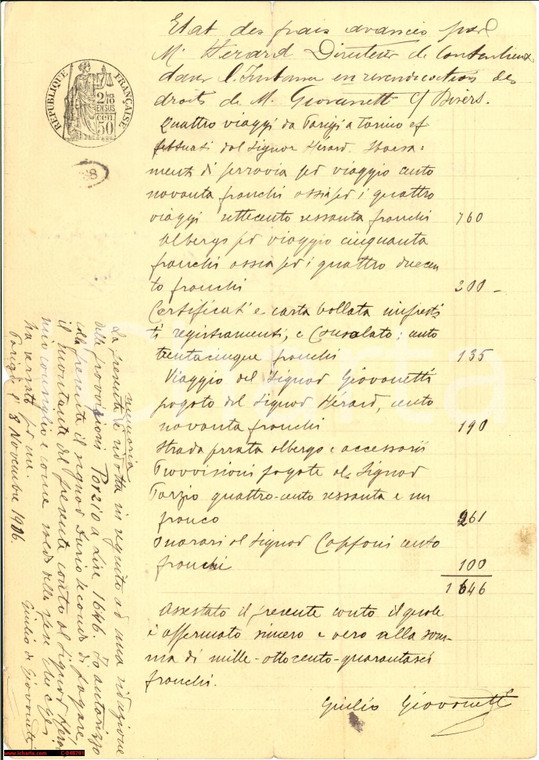 Etat des frais avancés par
M. Hérard Directeur de Contentieux
dans l'instance en revendication des
droits de M. Giovanetti c/
Quattro viaggi da Parigi a Torino ef
fettuati dal Signor Hérard.
menti di ferrovia per viaggio cento
novanta franchi ossia per i quattro
viaggi settecento sessanta franchi 760
Albergo per viaggio cinquanta
franchi ossia per i quattro duecen
to franchi 200 -
Certificati e carta bollata
registramenti, e Consolato; cento
trentacinque franchi 135
Viaggio del Signor Giovanetti
pagato dal Signor Hérard, cento
novanta franchi 190
Strada ferrata albergo e accessorii
Provvisioni pagate al Signor
Porzio quattro-cento sessanta e un
franco 261
Onorari al Signor Capponi cento
franchi 100
1646
Assestato il presente conto il quale
è affermato sincero e vero alla som-
ma di mille-ottocento-quarantasei
franchi.
Giulio Giovanetti
REPUBLIQUE FRANÇAISE
La presente memoria è ridotta in seguito ad una riduzione
delle provvisioni Porzio a Lire 1646. Io autorizzo
il signor
il montante del presente conto al Signor
mio consiglio come saldo delle spese che egli
ha versato per me.
Parigi li 8 Novembre 1906.
Giulio di Giovanetti
www.lcharta.com